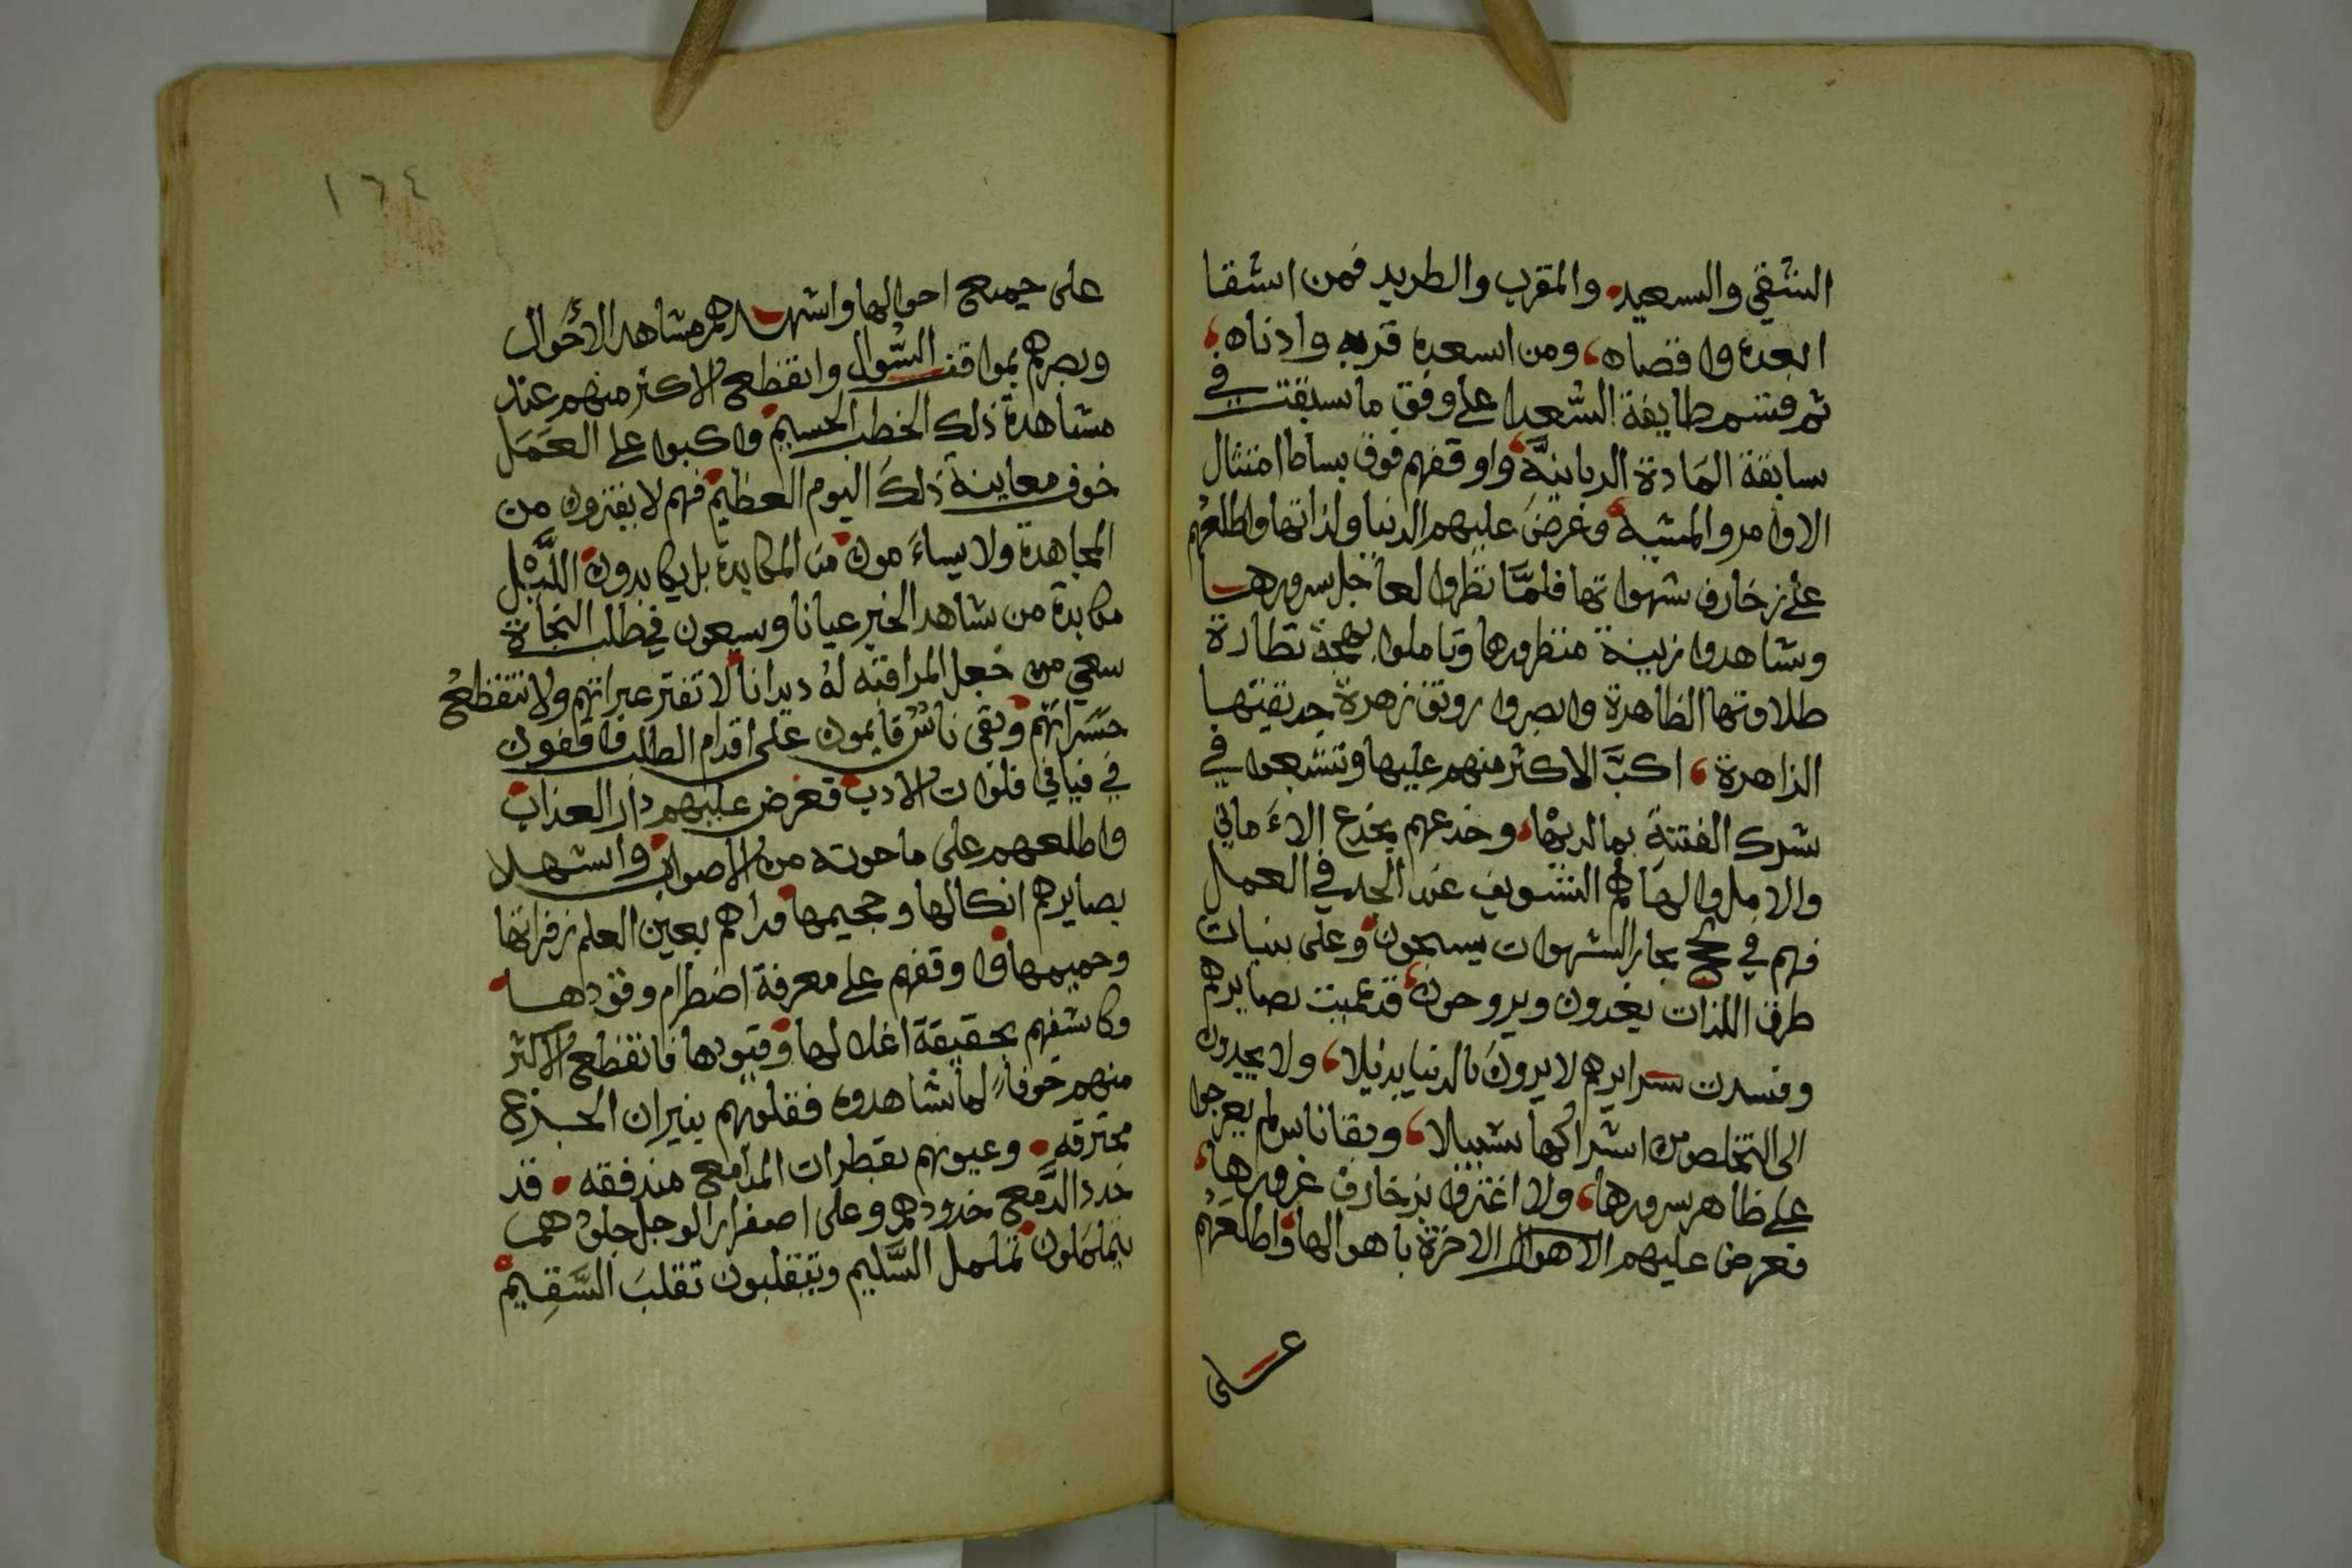 الشقي والسعيد والمقرب والطريد فمن اشقا
ابعده واقصاه، ومن اسعده قربه وادناه،
ثم قسم طايفة السُّعدا على وفق ما سبقت في
سابقة المادة الربانيَّة واوقفهم فوق بساط امتثال
الاوامر والمشيه وعَرضَ عليهم الدنيا ولذاتها واطلعهم
على زخارف شهواتها فلمَّا نظروا لعاجل سرورها
وشاهدوا زينة منظورها وتاملوا بهجة نظارة
طلاوتها الظاهرة وابصروا رونق زهرة حديقتها
الزاهرة، اكبَّ الاكثر منهم عليها وتشبعوا في
شرك الفتنة بما لديها، وخدعهم بخدع الاءَ ماني
والامل والهاهم التسويف عن الجد في العمل
فهم في لجج بحار الشهوات يسبحون وعلى بنيات
طرق اللذات يغدون ويروحون، قد عميت بصايرهم
وفسدت سرايرهم لا يرون بالدنيا بديلا، ولا يجدون
الى التخلص من اشراكها سبيلا، وبقا ناس لم يعرجوا
على ظاهر سرورها، ولا اغتروا بزخارف غرورها،
فعرض عليهم الاهوال الاخرة باهوالها واطلعهم
على
١٦٤
على جميع احوالها واشهدهم مشاهد الأحوال
وبصرهم بمواقف السُّوال وانقطع الاكثر منهم عند
مشاهدة ذلك الخطب الجسيم واكبوا على العَمَل
خوف معاينة ذلك اليوم العظيم فهم لا يفترون من
المجاهدة ولا يساءَمون من المكابدة بل يكابدون اللَّيْل
مكابدة من شاهد الخبر عيانا ويسعون في طلب النجاة
سعي من جعل المراقبه لهُ ديدانا لا تفتر عبراتهم ولا تنقطعُ
حَسَراتهم وبقى ناسٌ قايمون على اقدام الطلب واقفون
في فيافي فلوات الادب فعَرض عليهم دار العذاب
واطلعهم على ما حوته من الاصواب واشهد
بصايرهم انكالها وجحيمها فراهم بعين العلم زفراتها
وحميمها واوقفهم على معرفة اضطرام وقودها
وكاشفهم بحقيقة اغلالها وقيودها فانقطع الاكثر
منهم خوفاً لما شاهدوه فقلوبهم بنيران الجزع
محترقه وعيونهم بقطرات المدامع مندفقه قد
خدد الدَّمع خدودهم وعلى اصفرار الوجل جلودهم
يتململون تململ السَّليم ويتقلبون تقلبَ السَّقِيم